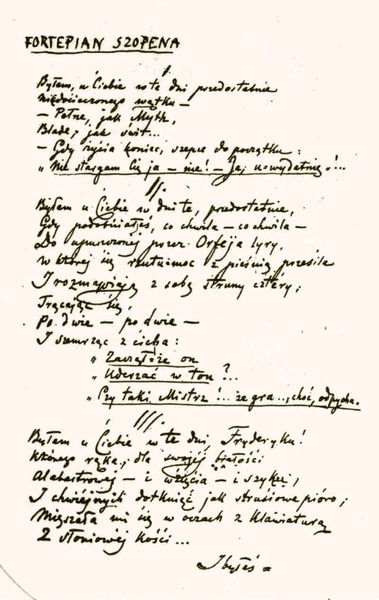 FORTEPIAN SZOPENA
I.
Byłem u Ciebie w te dni przedostatnie
Niedocieczonego wątku –
– Pełne, jak Myth,
Blade, jak świt...
– Gdy życia koniec szepce do początku:
„Nie stargam Cię ja – nie! – Ja, uwydatnię!...
II.
Byłem u Ciebie w dni te, przedostatnie,
Gdy podobniałeś, co chwila – co chwila –
Do upuszczonej przez Orfeja lyry,
W której się rzutu-moc z pieśnią przesila
I rozmawiają z sobą struny cztéry;
Trącając się,
Po dwie – po dwie –
I szemrząc z cicha:
„Zacząłże on
„Uderzać w ton?...
„Czy taki Mistrz!... że gra..., choć, odpycha.
III.
Byłem u Ciebie w te dni, Fryderyku!
Którego ręka, dla swojéj białości
Alabastrowej – i wzięcia – i szyku,
I chwiejnych dotknięć jak strusiowe pióro;
Mięszała mi się w oczach z klawiaturą
Z słoniowéj kości...
I byłeś =